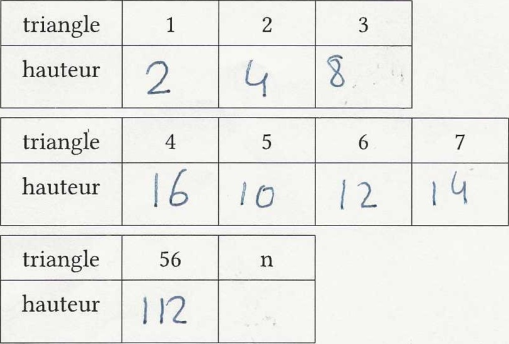 triangle 1 2 3
hauteur 2 4 8
triangle 4 5 6 7
hauteur 16 10 12 14
triangle 56 n
hauteur 112